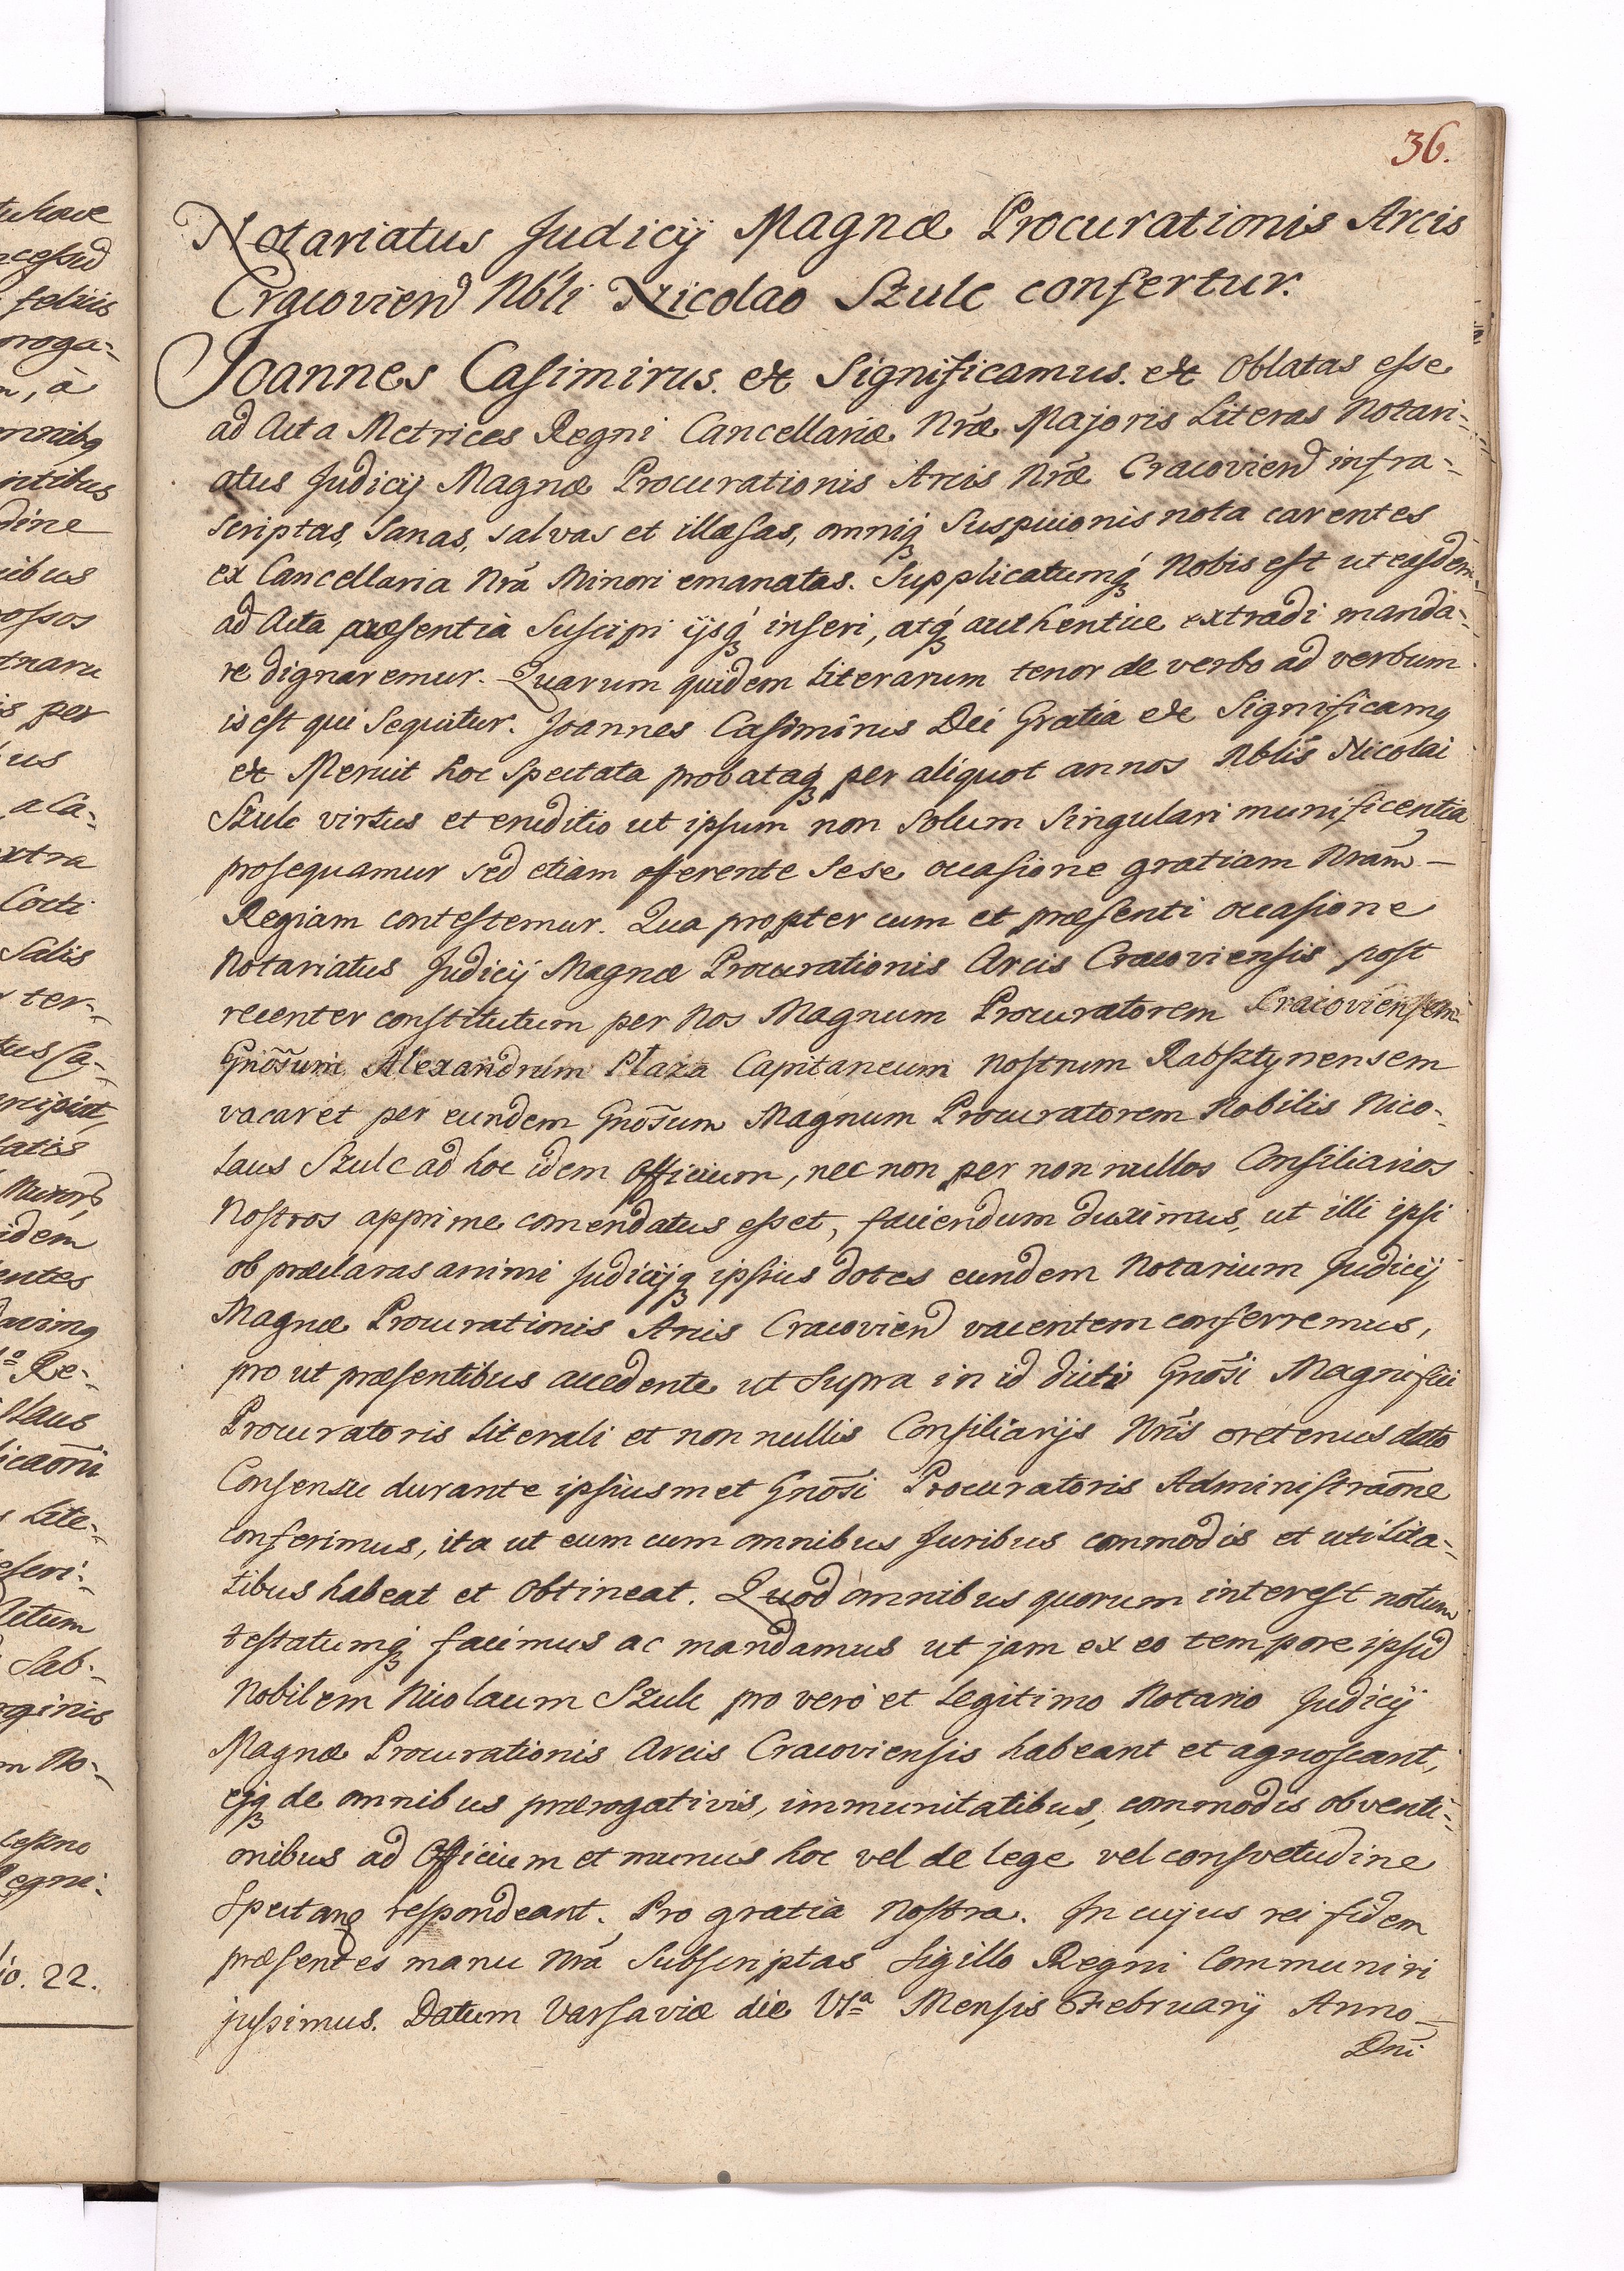 36.
Notariatus Judicij Magnæ Procurationis Arcis
Cracovien Nbli Nicolao Szulc confertur.
Joannes Casimirus. etc Significamus. etc Oblatas esse
ad Acta Metrices Regni Cancellariæ Nræ Majoris Literas Notari-
atus Judicij Magnæ Procurationis Arcis Nræ Cracovien infra-
scriptas, Sanas, salvas et illæsas, omniq Suspicionis nota carentes
ex Cancellaria Nrã Minori emanatas. Supplicatumq́ Nobis est ut easdem
ad Acta præsentia Suscipi ijsq́ inseri, atq́ authentice extradi manda-
re dignaremur. Quarum quidem Literarum tenor de verbo ad verbum
is est qui Sequitur. Joannes Casimirus Dei Gratia etc Significamq
etc Meruit hoc Spectata probataq per aliquot annos Nblis Nicolai
Szulc virtus et eruditio ut ipsum non solum Singulari munificentia
prosequamur sed etiam offerente sese occasione gratiam Nram —
Regiam contestemur. Qua propter cum et præsenti occasione
Notariatus Judicij Magnæ Procurationis Arcis Cracoviensis post
recenter constitutum per Nos Magnum Procuratorem Cracoviensem
Gnõsum Alexandrum Płaza Capitaneum Nostrum Rabsztynensem
vacaret per eundem Gnõsum Magnum Procuratorem Nobilis Nico-
laus Szulc ad hoc idem Officium, nec non per non nullos Consiliarios
Nostros apprime comendatus esset, faciendum duximus, ut illi ipsi
ob præclaras animi Judicijq ipsius dotes eundem Notarium Judicij
Magnæ Procurationis Arcis Cracovien vacentem conferremus,
pro ut præsentibus accedente ut Supra in id dicti Gnõsi Magnifici
Procuratoris Literali et non nullis Consiliarijs Nris oretenus dato
Consensu durante ipsiusmet Gnõsi Procuratoris Administraõne
conferimus, ita ut eum cum omnibus Juribus commodis et utilita-
tibus habeat et Obtineat. Quod omnibus quorum interest notum
testatumq́ facimus ac mandamus ut jam ex eo tempore ipsu
Nobilem Nicolaum Szulc pro vero et Legitimo Notario Judicij
Magnæ Procurationis Arcis Cracoviensis habeant et agnoscant,
eiq de omnibus prærogativis, immunitatibus, commodis obventi-
onibus ad Officium et munus hoc vel de lege vel consvetudine
Spectanq respondeant. Pro gratia Nostra. In cujus rei fidem
præsentes manu Nrã Subscriptas Sigillo Regni Communiri
jussimus. Datum Varsaviæ die VIª Mensis Februarij Anno —
Dni